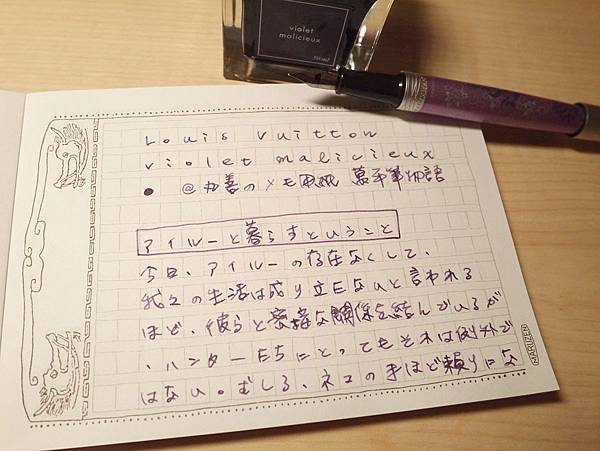 violet
malicieux
Louis Vuitton
violet malicieux
● @丸善のメモ帳 萬年筆物語
アイルーと暮らすということ
今日、アイルーの存在なくして、
我々の生活は成り立たないと言われる
ほど、彼らと密接な関係を結んでいるが
、ハンターたちにとってもそれは例外で
はない。むしろ、ネコの手ほど頼りにな
MARUZEN